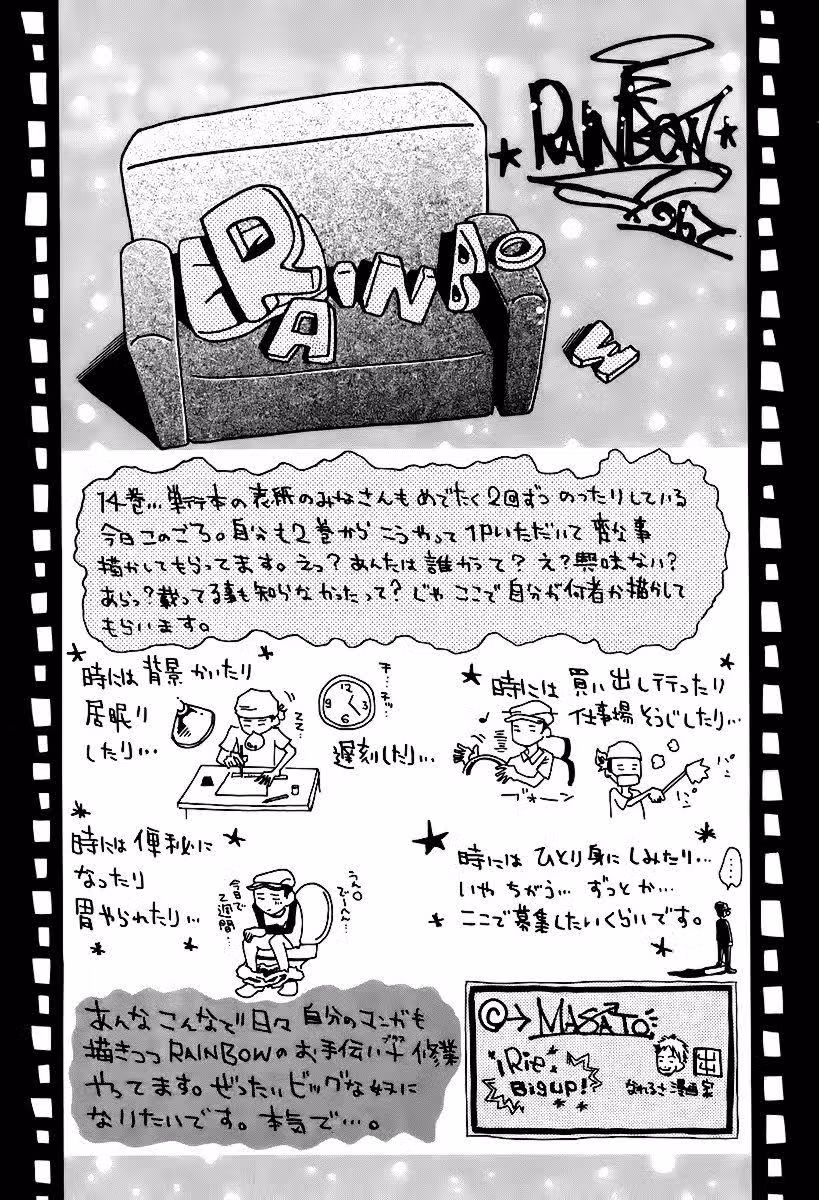 RAINBOW
RAINBOW
14巻… 単行本の表紙のみなさんも めでたく2回ずつ のったりしている
今日このごろ。自分も2巻から こうやって 1Pいただいて 変な事
描かしてもらってます。えっ?あんたは誰かって?え?興味ない?
あらっ?載ってる事も知らなかったって?じゃ ここで 自分が何者か描かして
もらいます。
時には 背景 かいたり
居眠り
したり…
チ…
チッ…
ZZ…
12
3
6
9
遅刻したり…
時には 買い出し行ったり
仕事場 そうじしたり…
ブォーン
パ
パ
時には 便秘に
なったり
胃やられたり…
うん○
でーへん…
今日で
2週間…
時には ひとり身に しみたり…
いや ちがう… ずっとか…
ここで募集したいくらいです。
……
あんな こんなで 日々 自分のマンガも
描きつつ RAINBOWの お手伝い プラス + 修業
やってます。ぜったい ビッグな 奴に
なりたいです。本気で…。
©→ MASATO
iRie
BiGUP!
出
なれるさ漫画家